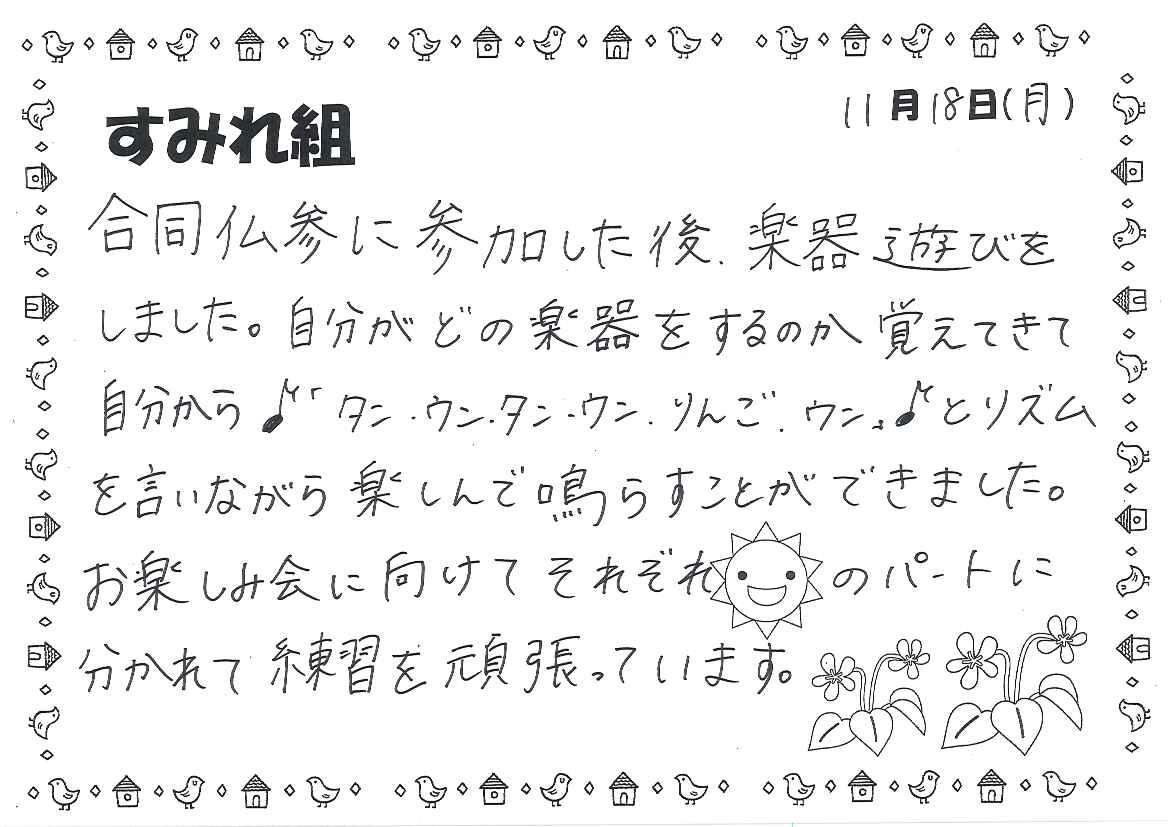 すみれ組
11月18日(月)
合同仏参に参加した後、楽器遊びを
しました。自分がどの楽器をするのか覚えてきて
自分から♪タン・ウン・タン・ウン・りんご・ウン♪とリズム
を言いながら楽しんで鳴らすことができました。
お楽しみ会に向けてそれぞれのパートに
分かれて練習を頑張っています。